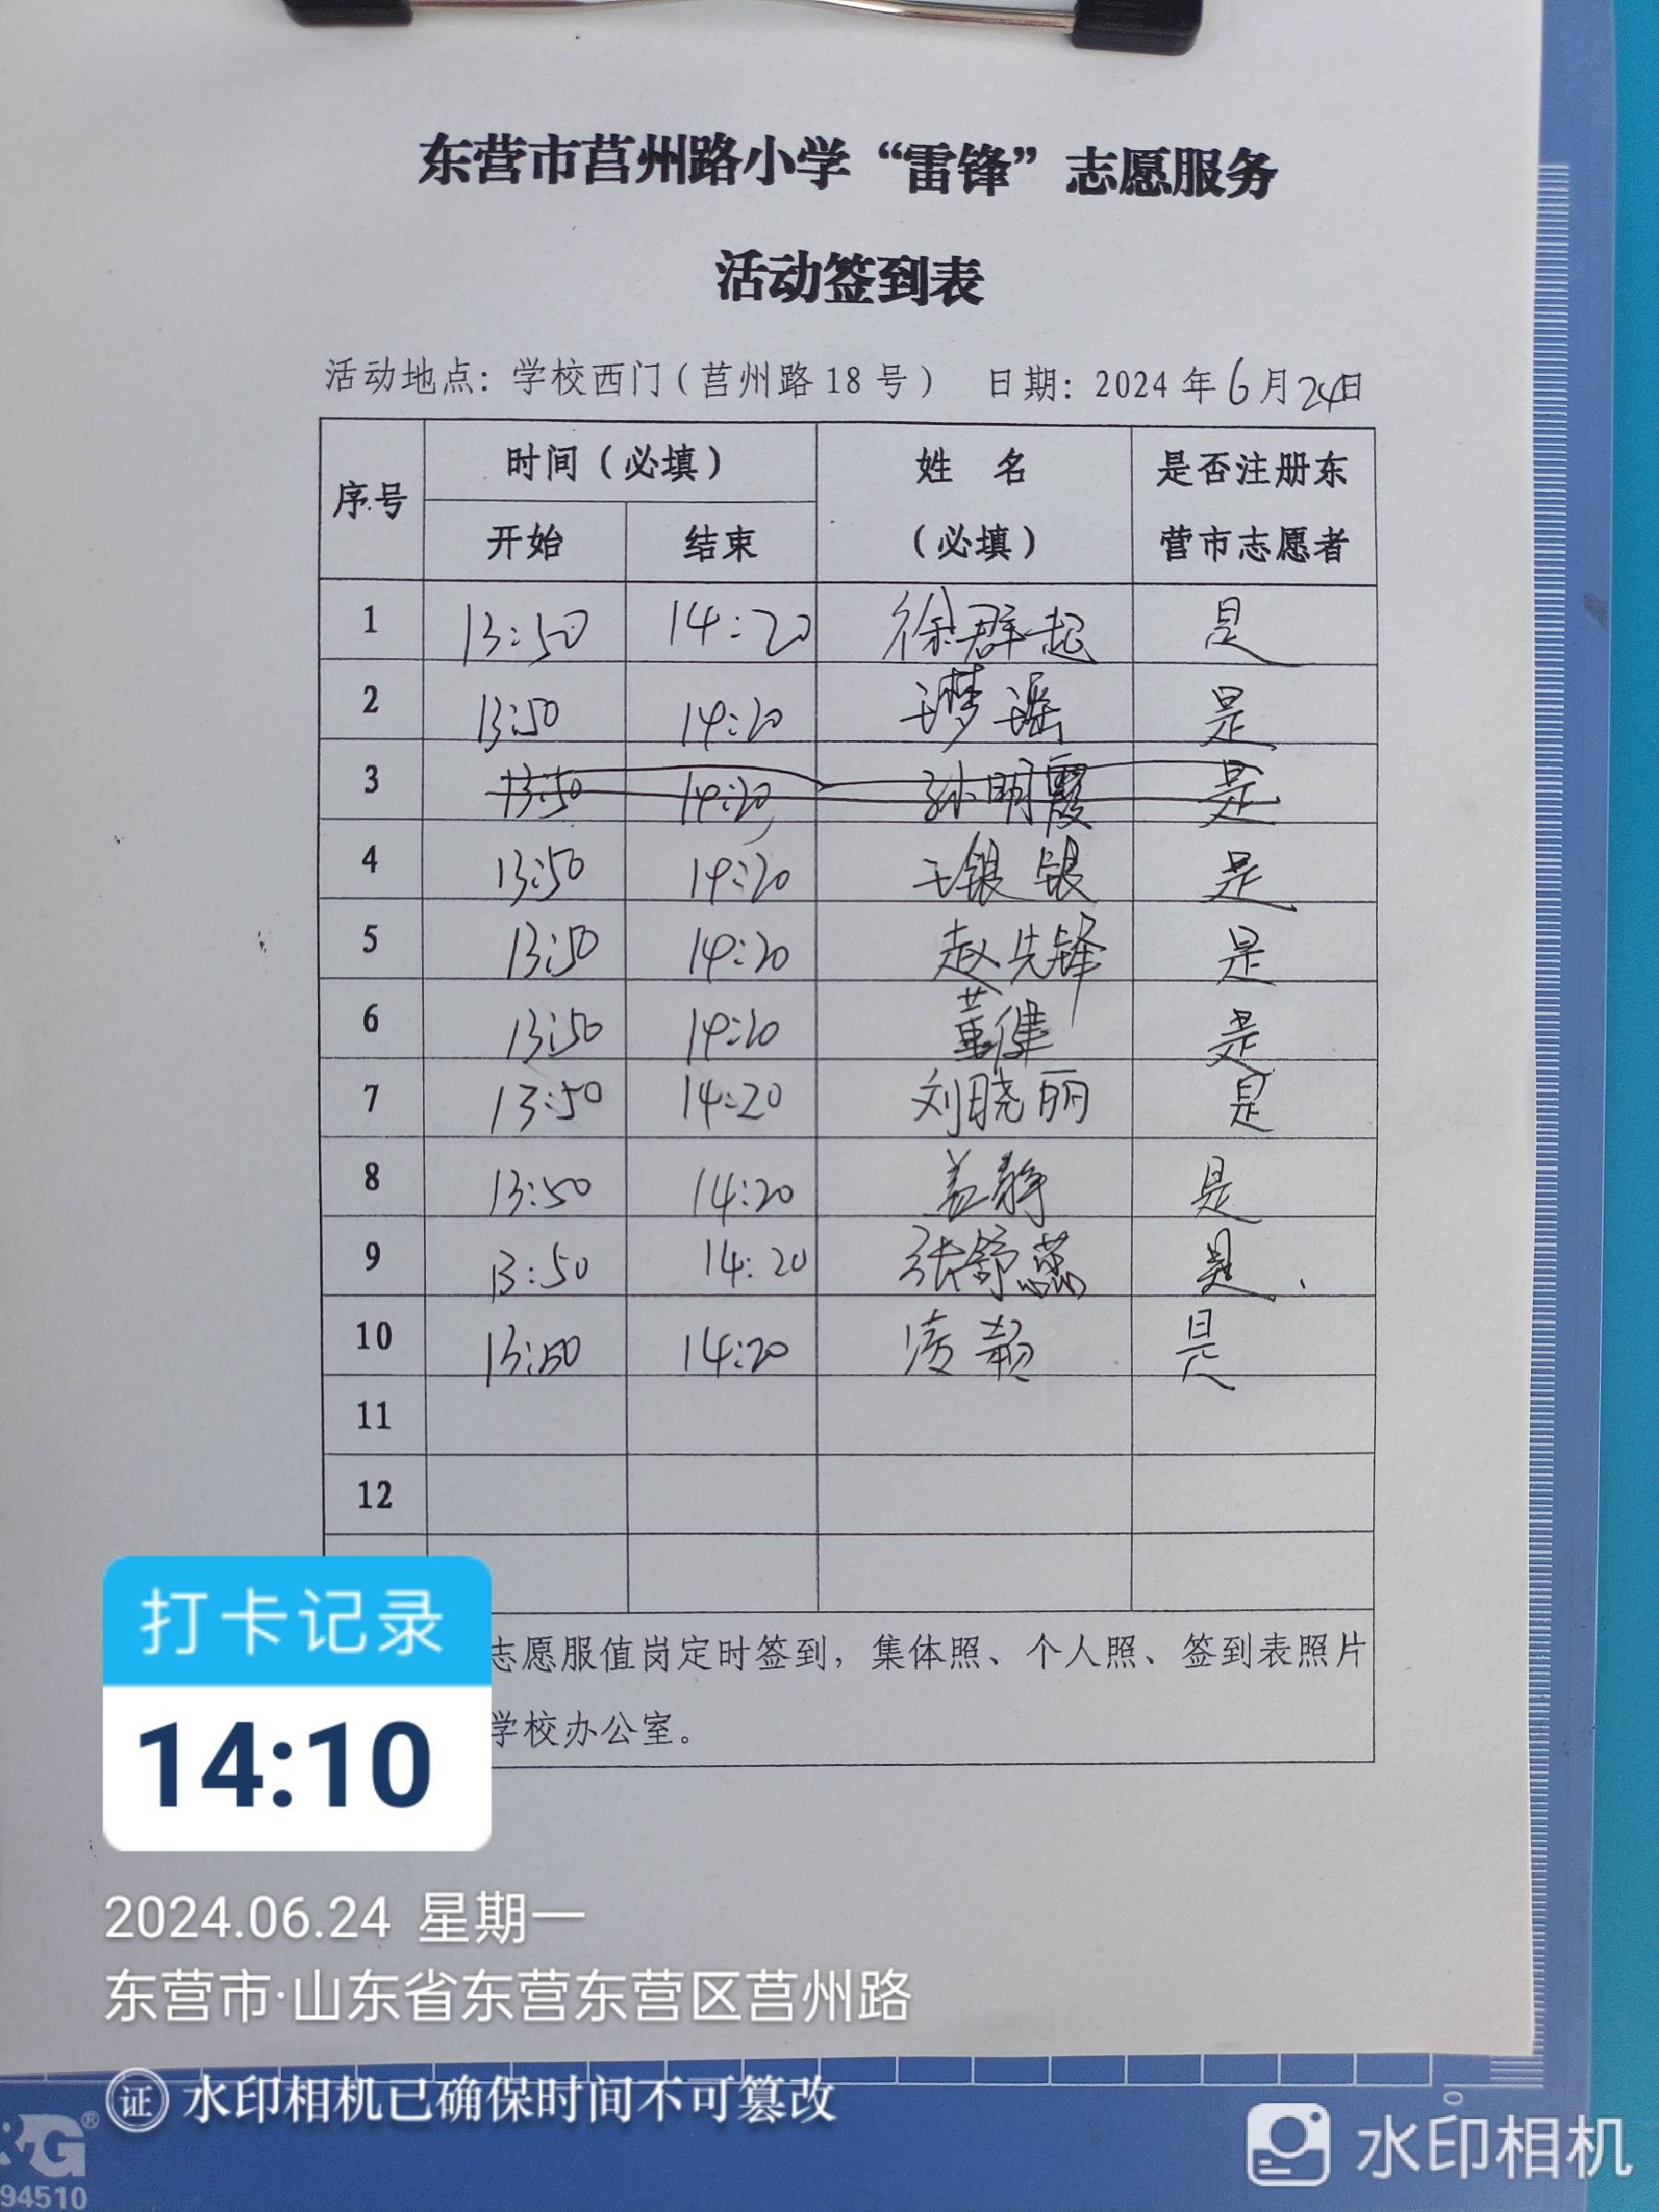 东营市莒州路小学“雷锋”志愿服务
活动签到表
活动地点：学校西门（莒州路18号） 日期：2024年6月24日
序号 时间（必填） 姓 名 是否注册东
开始 结束 （必填） 营市志愿者
1 13:50 14:20 徐群起 是
2 13:50 14:20 王梦瑶 是
3 13:50 14:20 孙明霞 是
4 13:50 14:20 王银银 是
5 13:50 14:20 赵先锋 是
6 13:50 14:20 董健 是
7 13:50 14:20 刘晓丽 是
8 13:50 14:20 盖静 是
9 13:50 14:20 张舒蕊 是
10 13:50 14:20 凌 是
11
12
志愿服值岗定时签到，集体照、个人照、签到表照片
学校办公室。
打卡记录
14:10
2024.06.24 星期一
东营市·山东省东营东营区莒州路
证 水印相机已确保时间不可篡改
&G®
94510
0
水印相机